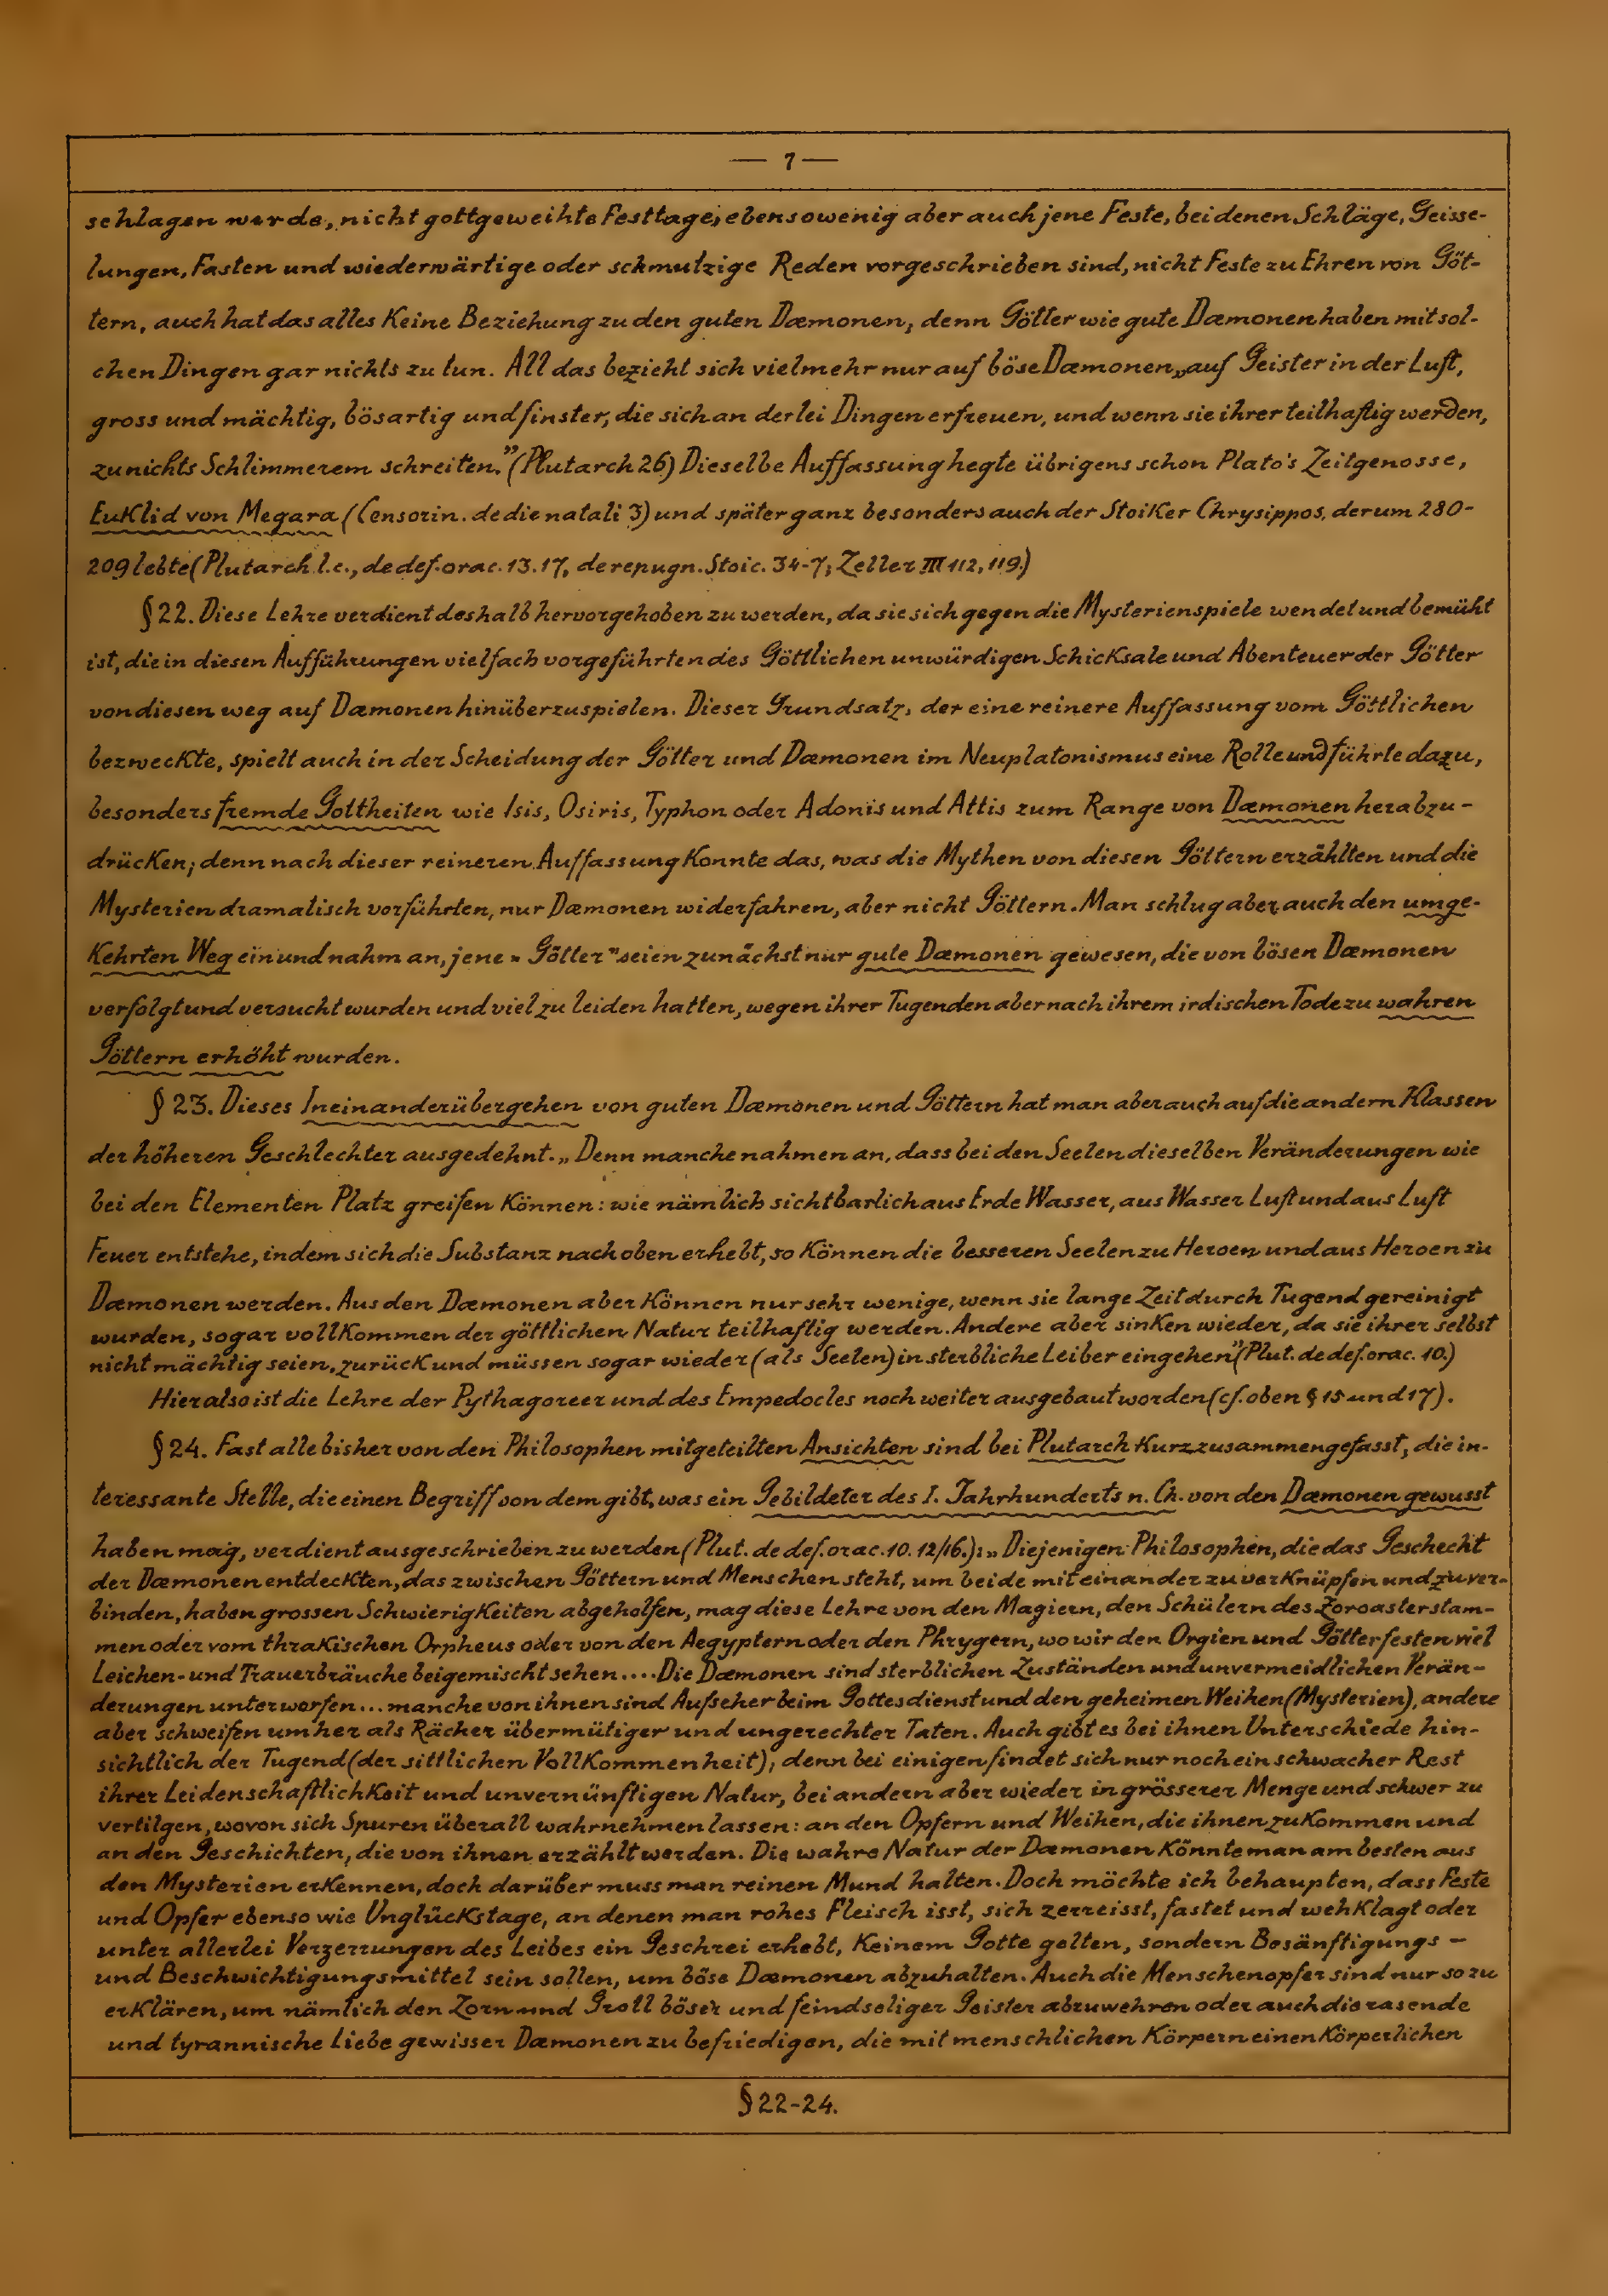 — 7 —
schlagen werde, nicht gottgeweihte Festtage; ebensowenig aber auch jene Feste, bei denen Schläge, Geisse-
lungen, Fasten und wiederwärtige oder schmutzige Reden vorgeschrieben sind, nicht Feste zu Ehren von Göt-
tern, auch hat das alles Keine Beziehung zu den guten Dæmonen, denn Götter wie gute Dæmonen haben mit sol-
chen Dingen gar nichts zu tun. All das bezieht sich vielmehr nur auf böse Dæmonen, „auf Geister in der Luft,
gross und mächtig, bösartig und finster, die sich an derlei Dingen erfreuen, und wenn sie ihrer teilhaftig werden,
zu nichts Schlimmerem schreiten.” (Plutarch 26) Dieselbe Auffassung hegte übrigens schon Plato's Zeitgenosse,
Euklid von Megara (Censorin. de die natali 3) und später ganz besonders auch der Stoiker Chrysippos, der um 280-
209 lebte (Plutarch l.c., de def. orac. 13. 17, de repugn. Stoic. 34-7; Zeller III 112, 119.)
§ 22. Diese Lehre verdient deshalb hervorgehoben zu werden, da sie sich gegen die Mysterienspiele wendet und bemüht
ist, die in diesen Aufführungen vielfach vorgeführten des Göttlichen unwürdigen Schicksale und Abenteuer der Götter
von diesen weg auf Dæmonen hinüberzuspielen. Dieser Grundsatz, der eine reinere Auffassung vom Göttlichen
bezweckte, spielt auch in der Scheidung der Götter und Dæmonen im Neuplatonismus eine Rolle und führte dazu,
besonders fremde Gottheiten wie Isis, Osiris, Typhon oder Adonis und Attis zum Range von Dæmonen herabzu-
drücken; denn nach dieser reineren Auffassung Konnte das, was die Mythen von diesen Göttern erzählten und die
Mysterien dramatisch vorführten, nur Dæmonen widerfahren, aber nicht Göttern. Man schlug aber auch den umge-
kehrten Weg ein und nahm an, jene „Götter” seien zunächst nur gute Dæmonen gewesen, die von bösen Dæmonen
verfolgt und versucht wurden und viel zu leiden hatten, wegen ihrer Tugenden aber nach ihrem irdischen Tode zu wahren
Göttern erhöht wurden.
§ 23. Dieses Ineinanderübergehen von guten Dæmonen und Göttern hat man aber auch auf die andern Klassen
der höheren Geschlechter ausgedehnt. „Denn manche nahmen an, dass bei den Seelen dieselben Veränderungen wie
bei den Elementen Platz greifen Können: wie nämlich sichtbarlich aus Erde Wasser, aus Wasser Luft und aus Luft
Feuer entstehe, indem sich die Substanz nach oben erhebt, so Können die besseren Seelen zu Heroen und aus Heroen zu
Dæmonen werden. Aus den Dæmonen aber Können nur sehr wenige, wenn sie lange Zeit durch Tugend gereinigt
wurden, sogar vollkommen der göttlichen Natur teilhaftig werden. Andere aber sinken wieder, da sie ihrer selbst
nicht mächtig seien, zurück und müssen sogar wieder (als Seelen) in sterbliche Leiber eingehen” (Plut. de def. orac. 10.)
Hier also ist die Lehre der Pythagoreer und des Empedocles noch weiter ausgebaut worden (cf. oben § 15 und 17).
§ 24. Fast alle bisher von den Philosophen mitgeteilten Ansichten sind bei Plutarch Kurz zusammengefasst; die in-
teressante Stelle, die einen Begriff von dem gibt, was ein Gebildeter des I. Jahrhunderts n. Ch. von den Dæmonen gewusst
haben mag, verdient ausgeschrieben zu werden (Plut. de def. orac. 10. 12/16.): „Diejenigen Philosophen, die das Geschecht
der Dæmonen entdeckten, das zwischen Göttern und Menschen steht, um beide miteinander zu verknüpfen und zu ver-
binden, haben grossen Schwierigkeiten abgeholfen, mag diese Lehre von den Magiern, den Schülern des Zoroaster stam-
men oder vom thrakischen Orpheus oder von den Aegyptern oder den Phrygern, wo wir den Orgien und Götterfesten viel
Leichen- und Trauerbräuche beigemischt sehen.... Die Dæmonen sind sterblichen Zuständen und unvermeidlichen Verän-
derungen unterworfen... manche von ihnen sind Aufseher beim Gottesdienst und den geheimen Weihen (Mysterien), andere
aber schweifen umher als Rächer übermütiger und ungerechter Taten. Auch gibt es bei ihnen Unterschiede hin-
sichtlich der Tugend (der sittlichen Vollkommenheit); denn bei einigen findet sich nur noch ein schwacher Rest
ihrer Leidenschaftlichkeit und unvernünftigen Natur, bei andern aber wieder in grösserer Menge und schwer zu
vertilgen, wovon sich Spuren überall wahrnehmen lassen: an den Opfern und Weihen, die ihnen zukommen und
an den Geschichten, die von ihnen erzählt werden. Die wahre Natur der Dæmonen Könnte man am besten aus
den Mysterien erkennen, doch darüber muss man reinen Mund halten. Doch möchte ich behaupten, dass Feste
und Opfer ebenso wie Unglückstage, an denen man rohes Fleisch isst, sich zerreisst, fastet und wehklagt oder
unter allerlei Verzerrungen des Leibes ein Geschrei erhebt, Keinem Gotte gelten, sondern Besänftigungs-
und Beschwichtigungsmittel sein sollen, um böse Dæmonen abzuhalten. Auch die Menschenopfer sind nur so zu
erklären, um nämlich den Zorn und Groll böser und feindseliger Geister abzuwehren oder auch die rasende
und tyrannische Liebe gewisser Dæmonen zu befriedigen, die mit menschlichen Körpern einen Körperlichen
§ 22-24.